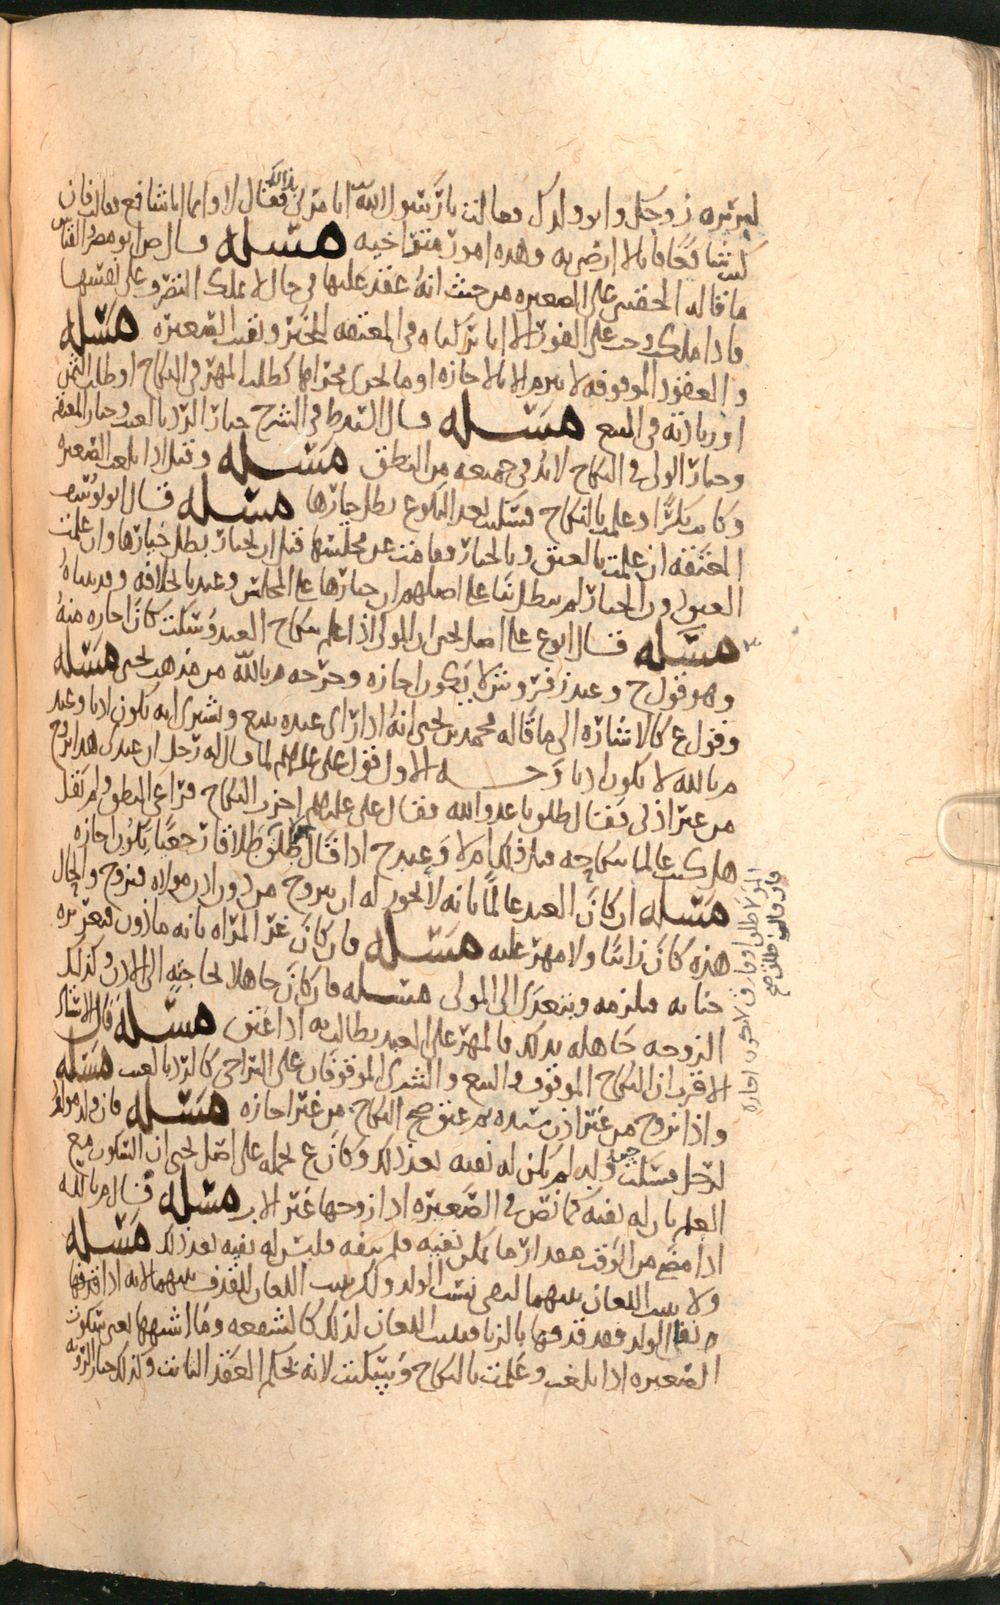 لبريره زوجك وابو ولدك فقالت يا رسول الله اتامرني بذلك فقال لا وانما انا شافع فقالت فان
كنت شافعا فانا لا ارضى به وهذه امور متراخيه مسله قال ص ابو مضر القياس
ما قاله الحقيني على الصغيره من حيث انه عقد عليها في حال لا تملك التصرف على نفسها
فاذا ملكت وجب على الفور الا انا تركناه في المعتقه للخبر وبقيت الصغيره مسله
والعقود الموقوفه لا تبرم الا بالاجازه او ما يجري مجراها كطلب المهر في النكاح او طلب الثمن
او زيادته في البيع مسله قال في الشرح خيار الرد بالعيب وخيار المعتقه
وخيار الولي في النكاح لا بد في جميعه من النطق مسله وقيل اذا بلغت الصغيره
وكانت بكرا وعلمت بالنكاح فسكتت بعد البلوغ بطل خيارها مسله قال ابو يوسف
المعتقه ان علمت بالعتق وبالخيار وقامت عن مجلسها قبل ان تختار بطل خيارها وان علمت
العتق دون الخيار لم يبطل بنا على اصلهم ان خيارها على المجلس وعندنا خلافه وقد بيناه
مسله قال ابو ع على اصل يحيى ان المولى اذا علم بنكاح العبد وسكت كان اجازه منه
وهو قول ح وعند زفر و ش لا يكون اجازه وخرجه م بالله من مذهب يحيى مسله
وقول ع كالاشاره الى ما قاله محمد بن يحيى انه اذا راى عبده يبيع ويشتري انه يكون اذنا وعند
م بالله لا يكون اذنا وجه الاول قول علي عليلم لما قال له رجل ان عبدي هذا تزوج
من غير اذني فقال طلق يا عدو الله فقال علي عليلم اجزت النكاح فراعى النطق ولم يقل
هل كنت عالما بنكاحه قبل ذلك ام لا وعند ح اذا قال طلق طلاقا رجعيا يكون اجازه
مسله ان كان العبد عالما بانه لا يجوز له ان يتزوج من دون اذن مولاه فتزوج والحال
هذه كان زانيا ولا مهر عليه مسله فان كان غر المراه بانه ماذون فتغريره
جنايه فيلزمه ويتعدى الى المولى مسله فان كان جاهلا لحاجته الى الاذن وكذلك
الزوجه جاهله بذلك فالمهر على العبد يطالب به اذا عتق مسله قال الاستاذ
الاقرب ان النكاح الموقوف والبيع والشرى الموقوفان على التراخي كالرد بالعيب مسله
واذا تزوج من غير اذن سيده ثم عتق صح النكاح من غير اجازه مسله فان ولد مولود
لرجل فسكت حين ولد لم يكن له نفيه بعد ذلك وكان ع يحمله على اصل يحيى ان السكوت مع
العلم بان له نفيه كما نص في الصغيره اذا زوجها غير الاب مسله قال م بالله
اذا مضى من الوقت مقدار ما يمكن نفيه فلم ينفه فليس له نفيه بعد ذلك مسله
ولا يثبت اللعان بينهما لنفي نسب الولد ولكن يثبت اللعان للقذف بينهما لانه اذا قذفها
ونفا الولد فقد قذفها بالزنا فيثبت اللعان لذلك كالشفعه وما اشبهها يعني سكوت
الصغيره اذا بلغت وعلمت بالنكاح وسكتت لانه بحكم العقد الثابت وكذلك خيار الرويه
فان قال طلق صح
المولى طلق او فارق لا تكون اجازه